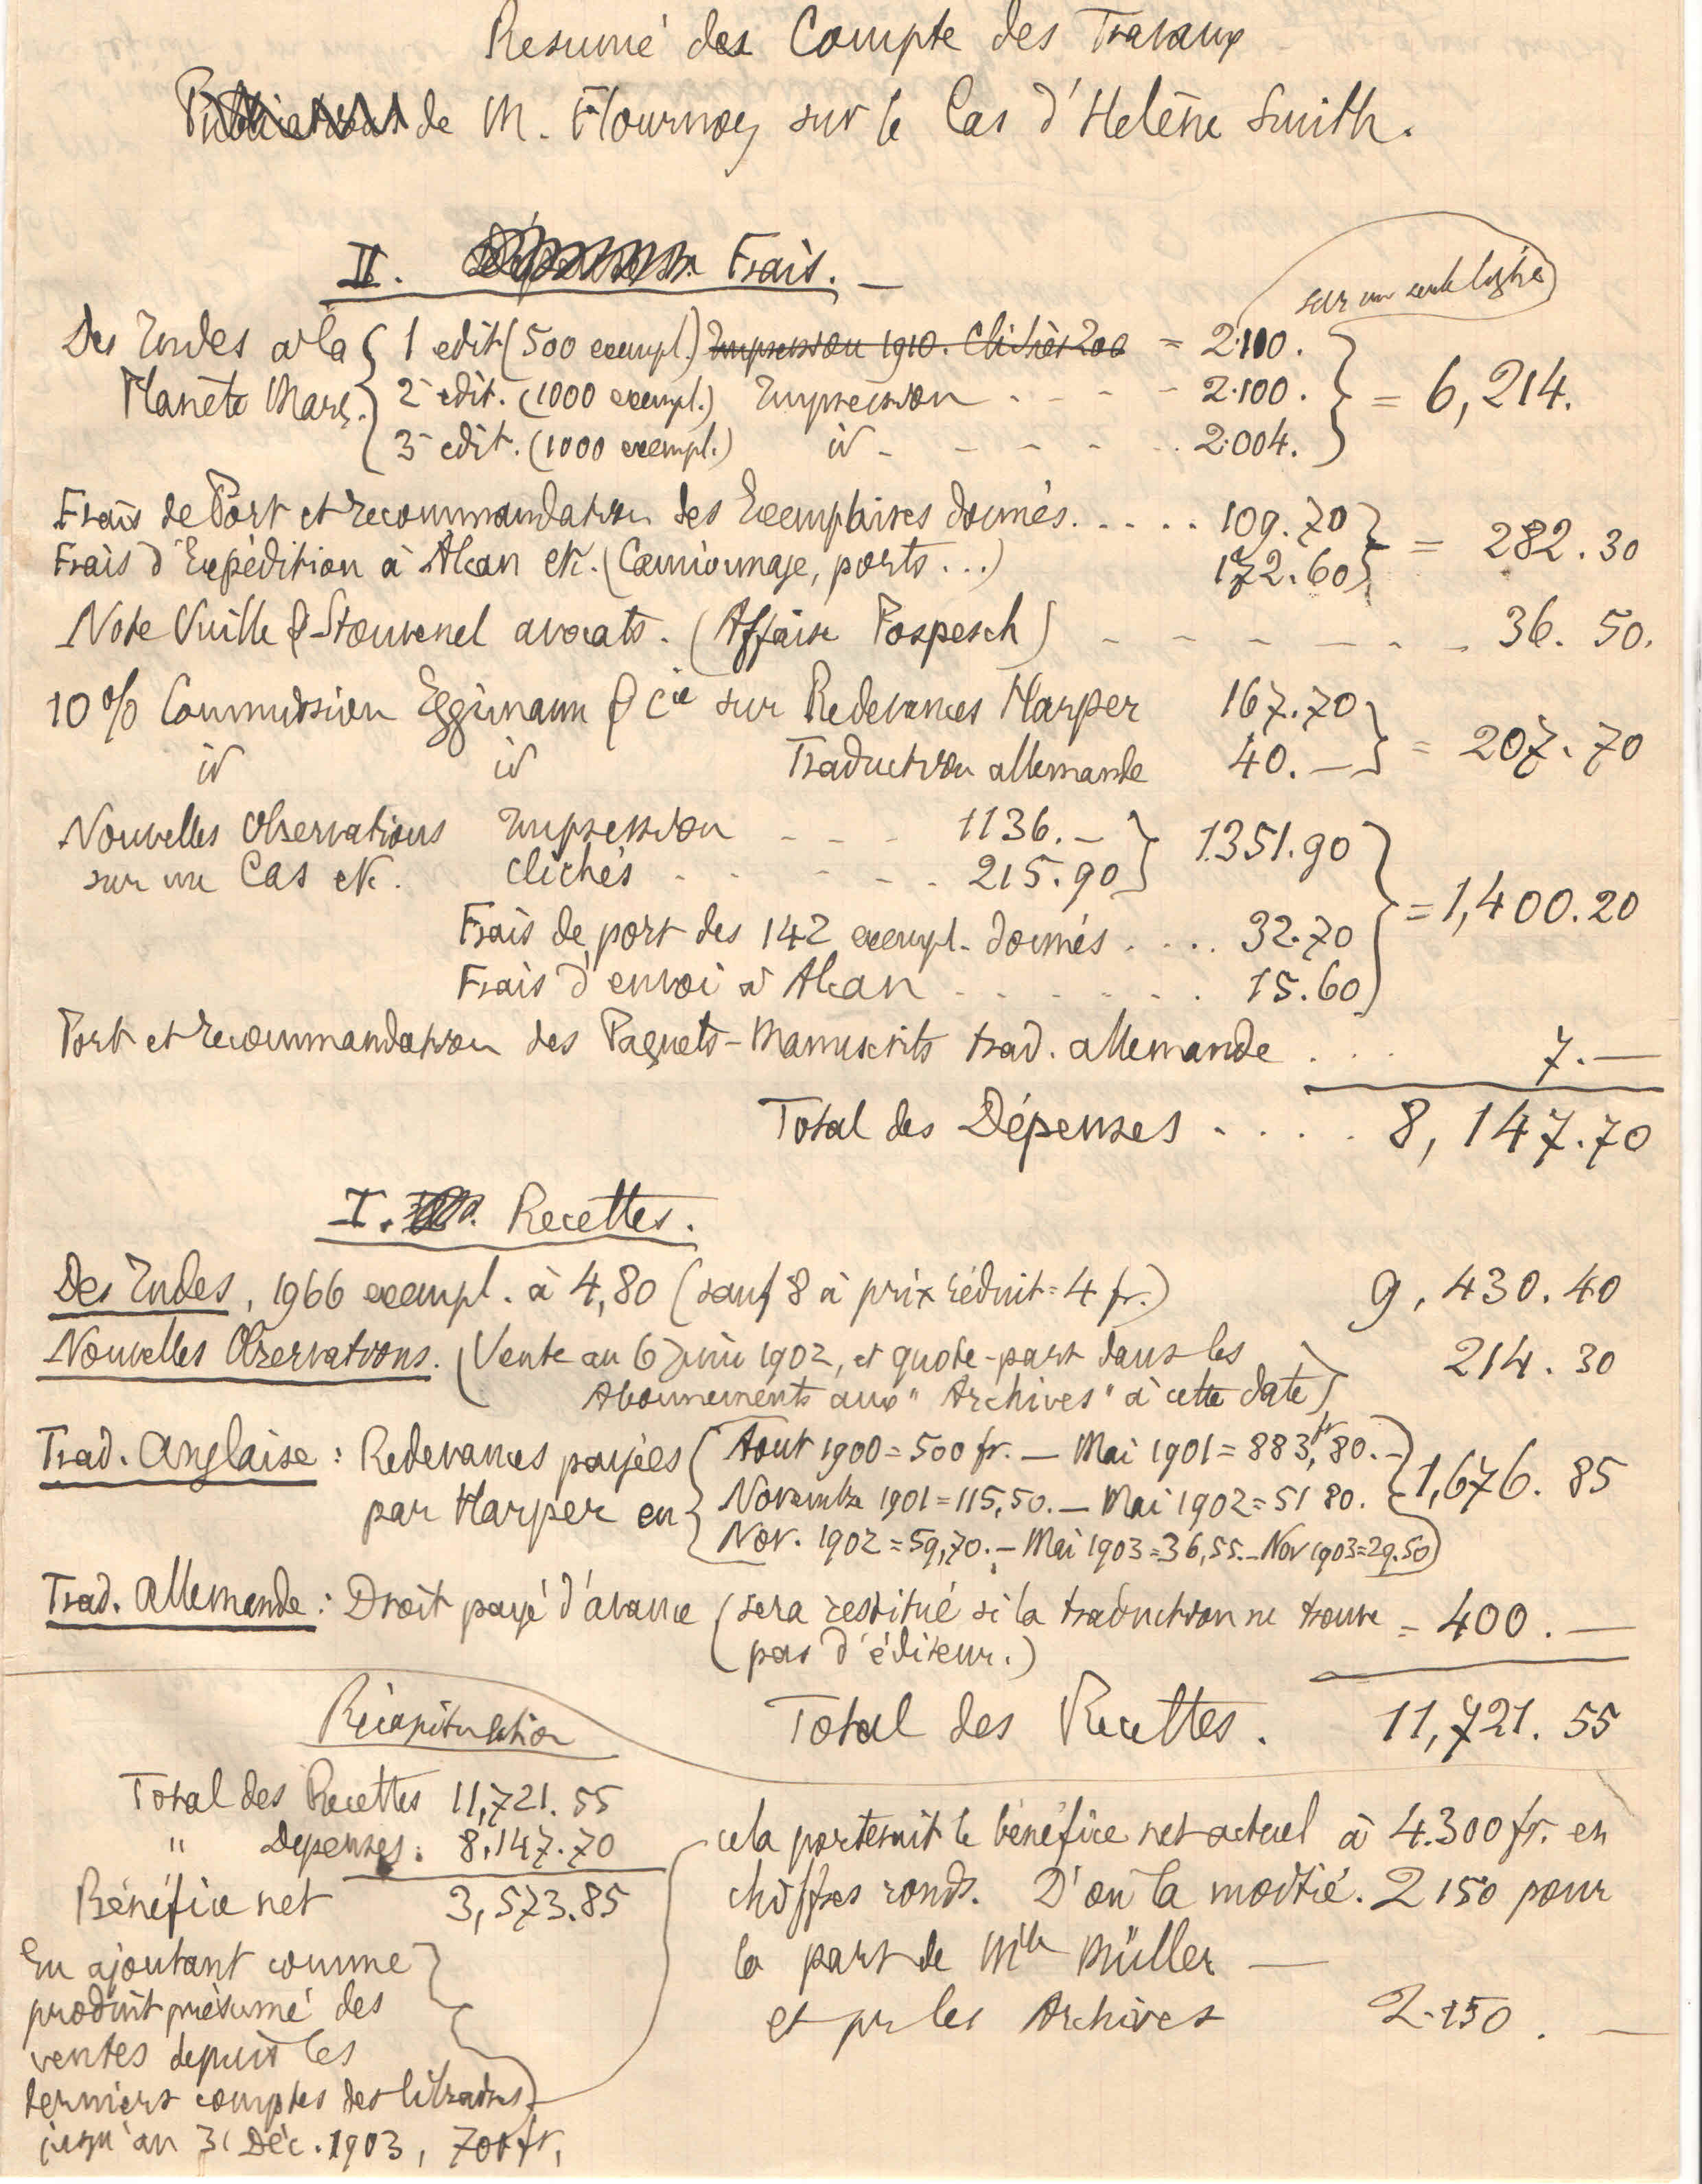 Resumé des Compte des Travaux
Publications de M. Flournoy sur le Cas d'Helène Smith.
II. Dépenses. Frais. —
sur une seule ligne
Des Indes à la Planète Mars. { 1 edit (500 exempl.) Impression 1910. Clichés 200 = 2.110. } = 6,214.
2e edit. (1000 exempl.) Impression - - - 2.100.
3e edit. (1000 exempl.) id - - - - 2.004.
Frais de Port et recommandation des Exemplaires donnés. . . . . 109.70 } = 282.30
Frais d'Expédition à Alcan etc. (Camionnage, ports . . .) 172.60
Note Vuille & Stouvenel avocats. (Affaire Pospesch) - - - - - - 36. 50.
10 % Commission Eggimann & Cie sur Redevances Harper 167.70 } = 207.70
id id Traduction allemande 40. —
Nouvelles Observations Impression - - - 1136. — } 1351.90 } = 1,400.20
sur un Cas etc. clichés - - - - - 215.90
Frais de port des 142 exempl. donnés . . . . 32.70
Frais d'envoi à Alcan - - - - - . . 15.60
Port et recommandation des Paquets-Manuscrits trad. allemande . . . 7. —
Total des Dépenses . . . . 8,147.70
I. Recettes.
Des Indes, 1966 exempl. à 4,80 (sauf 8 à prix réduit = 4 fr.) 9,430.40
Nouvelles Observations. (Vente au 6 juin 1902, et quote-part dans les 214.30
Abonnements aux "Archives" à cette date)
Trad. Anglaise : Redevances payées { Aout 1900 = 500 fr. — Mai 1901 = 883,fr 80. — } 1,676.85
par Harper en Novembre 1901 = 115,50. — Mai 1902 = 51 80.
Nov. 1902 = 59,70. — Mai 1903 = 36,55. — Nov 1903 = 29.50
Trad. Allemande : Droit payé d'avance (sera restitué si la traduction ne trouve = 400. —
pas d'éditeur.)
Total des Recettes. 11,721.55
Récapitulation
Total des Recettes 11,721.55
" Depenses : 8,147.70
Bénéfice net 3,573.85
En ajoutant comme
produit présumé des
ventes depuis les
derniers comptes des libraires
jusqu'au 31 Déc. 1903, 700 fr,
cela porterait le bénéfice net actuel à 4.300 fr. en
chiffres ronds. D'où la moitié. 2150 pour
la part de Mlle Müller —
et pr les Archives 2.150. —